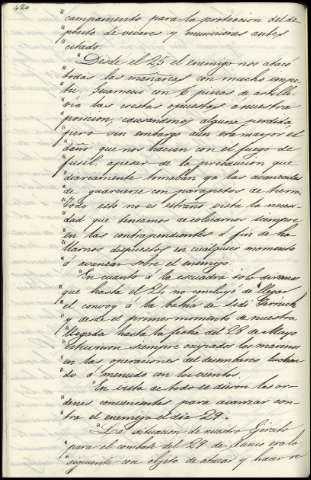 420
" campamento para la proteccion del de
" pósito de viveres y municiones antes
" citado.
" Desde el 25 el enemigo nos atacó
" todas las mañanas con mucho empe
" ño, guarneció con 6 piezas de artille
" ria las crestas opuestas a nuestra
" posicion, causandonos alguna perdida,
" pero sin embargo aun era mayor el
" daño que nos hacian con el fuego de
" fusil, apesar de la precaucion que
" diariamente tomaban ya las avanzadas
" de guarecerse con parapetos de tierra,
" Todo esto no es estraño vista la necesi
" dad que teniamos de colocarnos siempre
" en las contrapendientes á fin de ha
" llarnos dispuestos en cualquier momento
" á avanzar sobre el enemigo.
" En cuanto á la escuadra solo diremos
" que hasta el 24 no concluyó de llegar
" el convoy á la bahia de Sidi Ferruch
" y desde el primer momento de nuestra
" llegada hasta la fecha del 28 de Mayo
" estuvieron siempre ocupados los marinos
" en las operaciones del desembarco luchan
" do á menudo con los vientos.
" En vista de todo se dieron las or
" denes convenientes para avanzar con
" tra el enemigo el dia 29.
" La situacion de nuestro Ejercito
" para el combate del 29 de Junio era la
" siguiente con objeto de atacar y hacer re